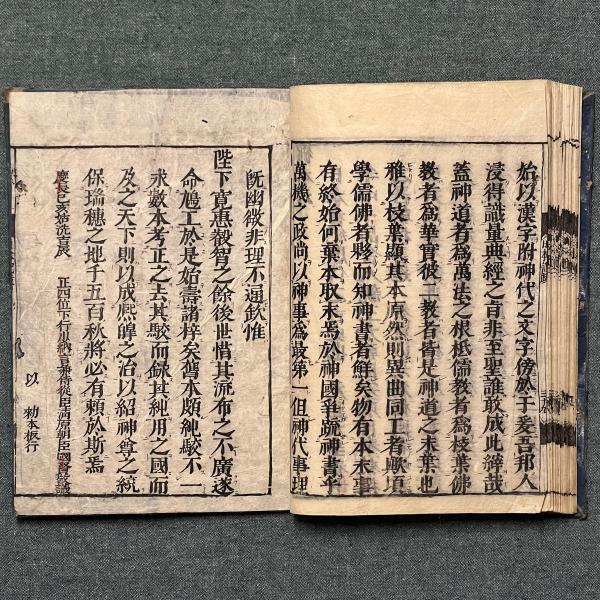 始以漢字附神代之文字傍於于爰吾邦人
浸得識量典經之旨非至聖誰敢成此綷哉
蓋神道者爲萬法之根柢儒教者爲枝葉佛
教者爲華實彼二教者皆是神道之末葉也
雅以枝葉顯其本原然則異曲同工者歟頃
學儒佛者夥而知神書者鮮矣物有本末事
有終始何棄本取末焉於神國爭疏神書乎
萬機之政尚以神事爲最第一但神代事理
既幽微非理不逼欽惟
陛下寛惠叡智之餘後世惜其流布之不廣遂
命鳩工於是始壽諸梓矣舊本頗純駁不一
求數本考正之去其駁而錄其純用之國而
及之天下則以成熈皥之治以紹神尊之統
保瑞穗之地千五百秋將必有賴於斯焉
慶長己亥姑洗吉辰 正四位下行少納言兼侍從臣清原朝臣國賢敬識
以 勅本板行